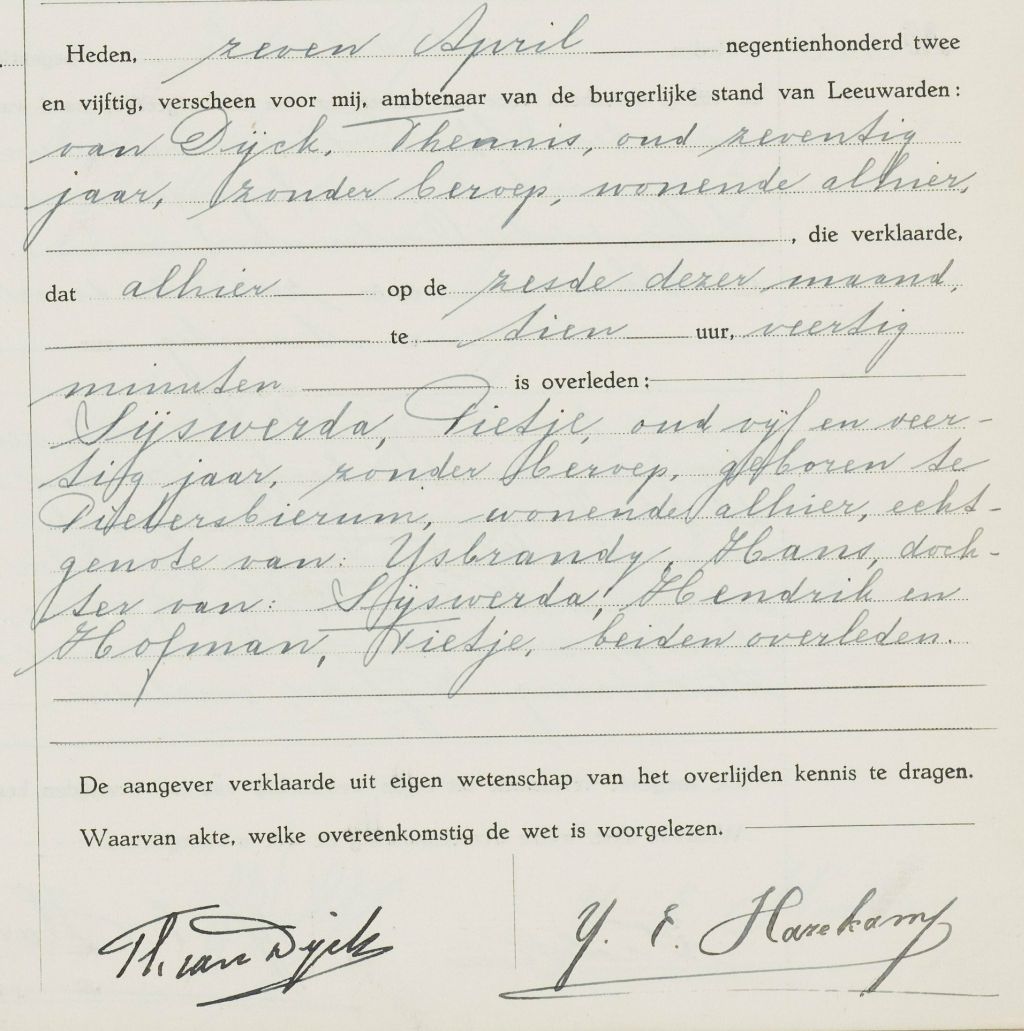 Heden, zeven April negentienhonderd twee
en vijftig, verscheen voor mij, ambtenaar van de burgerlijke stand van Leeuwarden:
van Dijck, Theunis, oud zeventig
jaar, zonder beroep, wonende alhier,
, die verklaarde,
dat alhier op de zesde dezer maand,
te tien uur, veertig
minuten is overleden:
Sijswerda, Pietje, oud vijf en veer-
tig jaar, zonder beroep, geboren te
Pietersbierum, wonende alhier, echt-
genote van: Ysbrandy, Hans, doch-
ter van: Sijswerda, Hendrik en
Hofman, Tietje, beiden overleden.
De aangever verklaarde uit eigen wetenschap van het overlijden kennis te dragen.
Waarvan akte, welke overeenkomstig de wet is voorgelezen.
Th. van Dijck Y. E. Harekamp